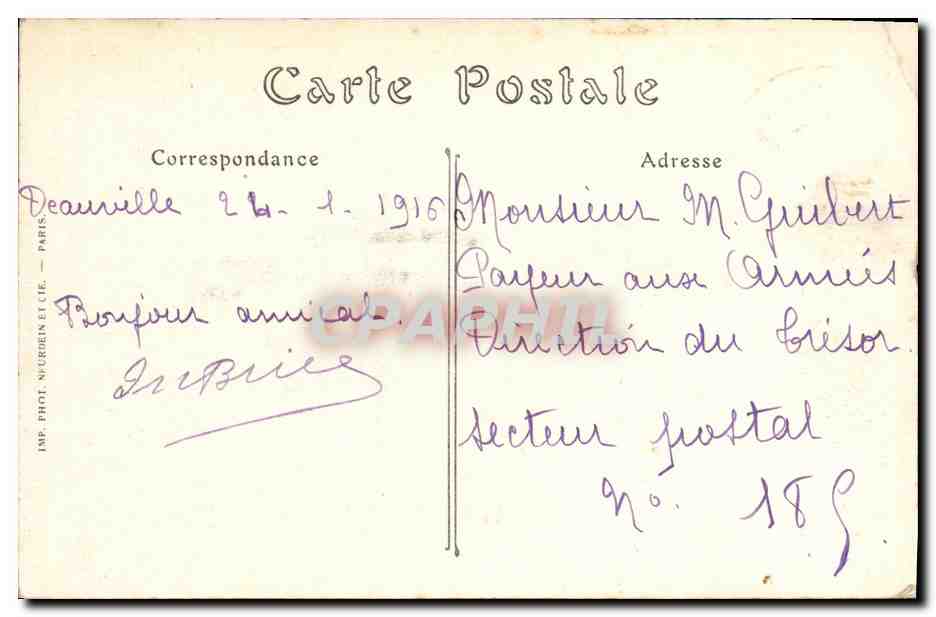 Carte Postale
Correspondance
Adresse
Deauville 24. 1. 1916
Bonjour amical.
Monsieur M. Guibert
Payeur aux Armées
Direction du trésor.
secteur postal
No. 185
IMP. PHOT. NEURDEIN ET CIE. — PARIS.
CPAPHIL